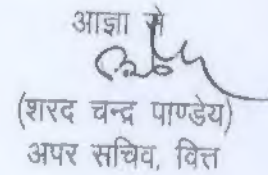 आज्ञा से
(शरद चन्द्र पाण्डेय)
अपर सचिव, वित्त